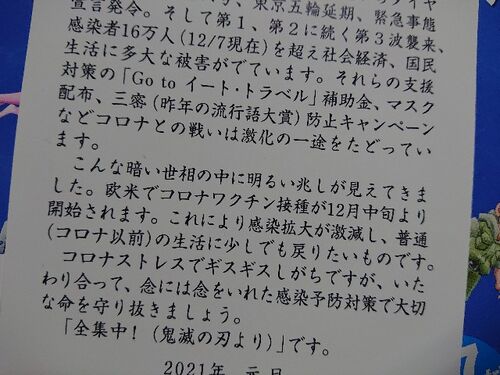 東京五輪延期、緊急事態
宣言発令。そして第1、第2に続く第3波襲来、
感染者16万人(12/7現在)を超え社会経済、国民
生活に多大な被害がでています。それらの支援
対策の「Go to イート・トラベル」補助金、マスク
配布、三密(昨年の流行語大賞)防止キャンペーン
などコロナとの戦いは激化の一途をたどってい
ます。
こんな暗い世相の中に明るい兆しが見えてきま
した。欧米でコロナワクチン接種が12月中旬より
開始されます。これにより感染拡大が激減し、普通
(コロナ以前)の生活に少しでも戻りたいものです。
コロナストレスでギスギスしがちですが、いた
わり合って、念には念をいれた感染予防対策で大切
な命を守り抜きましょう。
「全集中!(鬼滅の刃より)」です。
2021年 元日